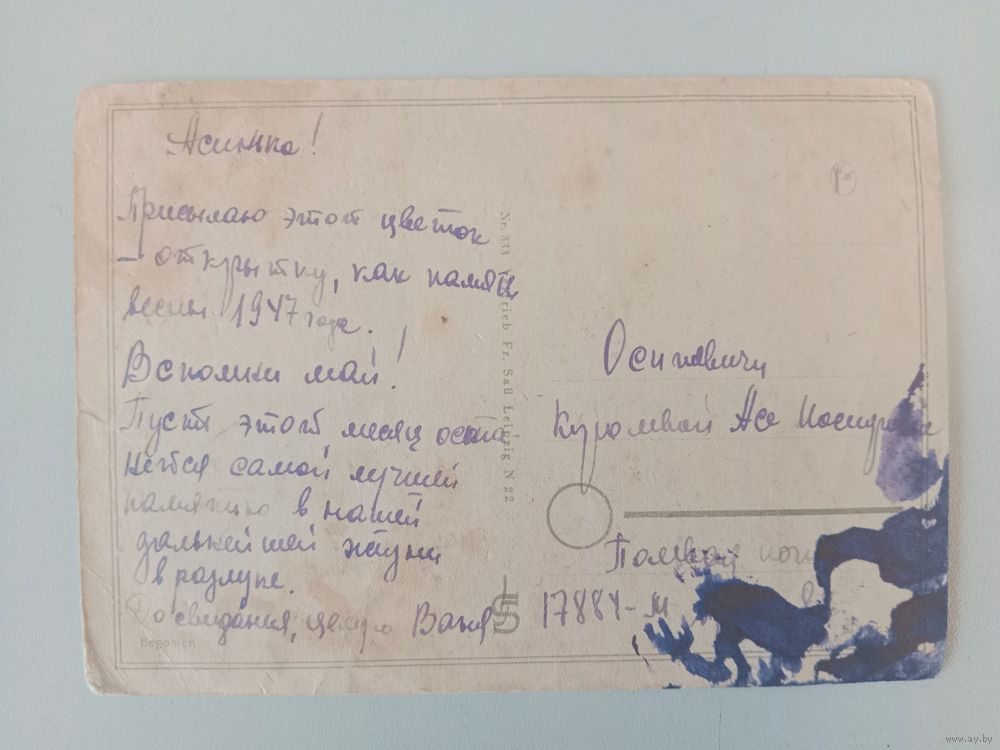 Асинька!
Присылаю этот цветок
- открытку, как память
весны 1947 года.
Вспомни май!
Пусть этот месяц оста
нется самой лучшей
памятью в нашей
дальнейшей жизни
в разлуке.
До свидания, целую Ваня
Begonien
Nr. 333 Fr. Saß Leipzig N 22
Осиповичи
Асе
Полевая
17884-м
www.ay.by